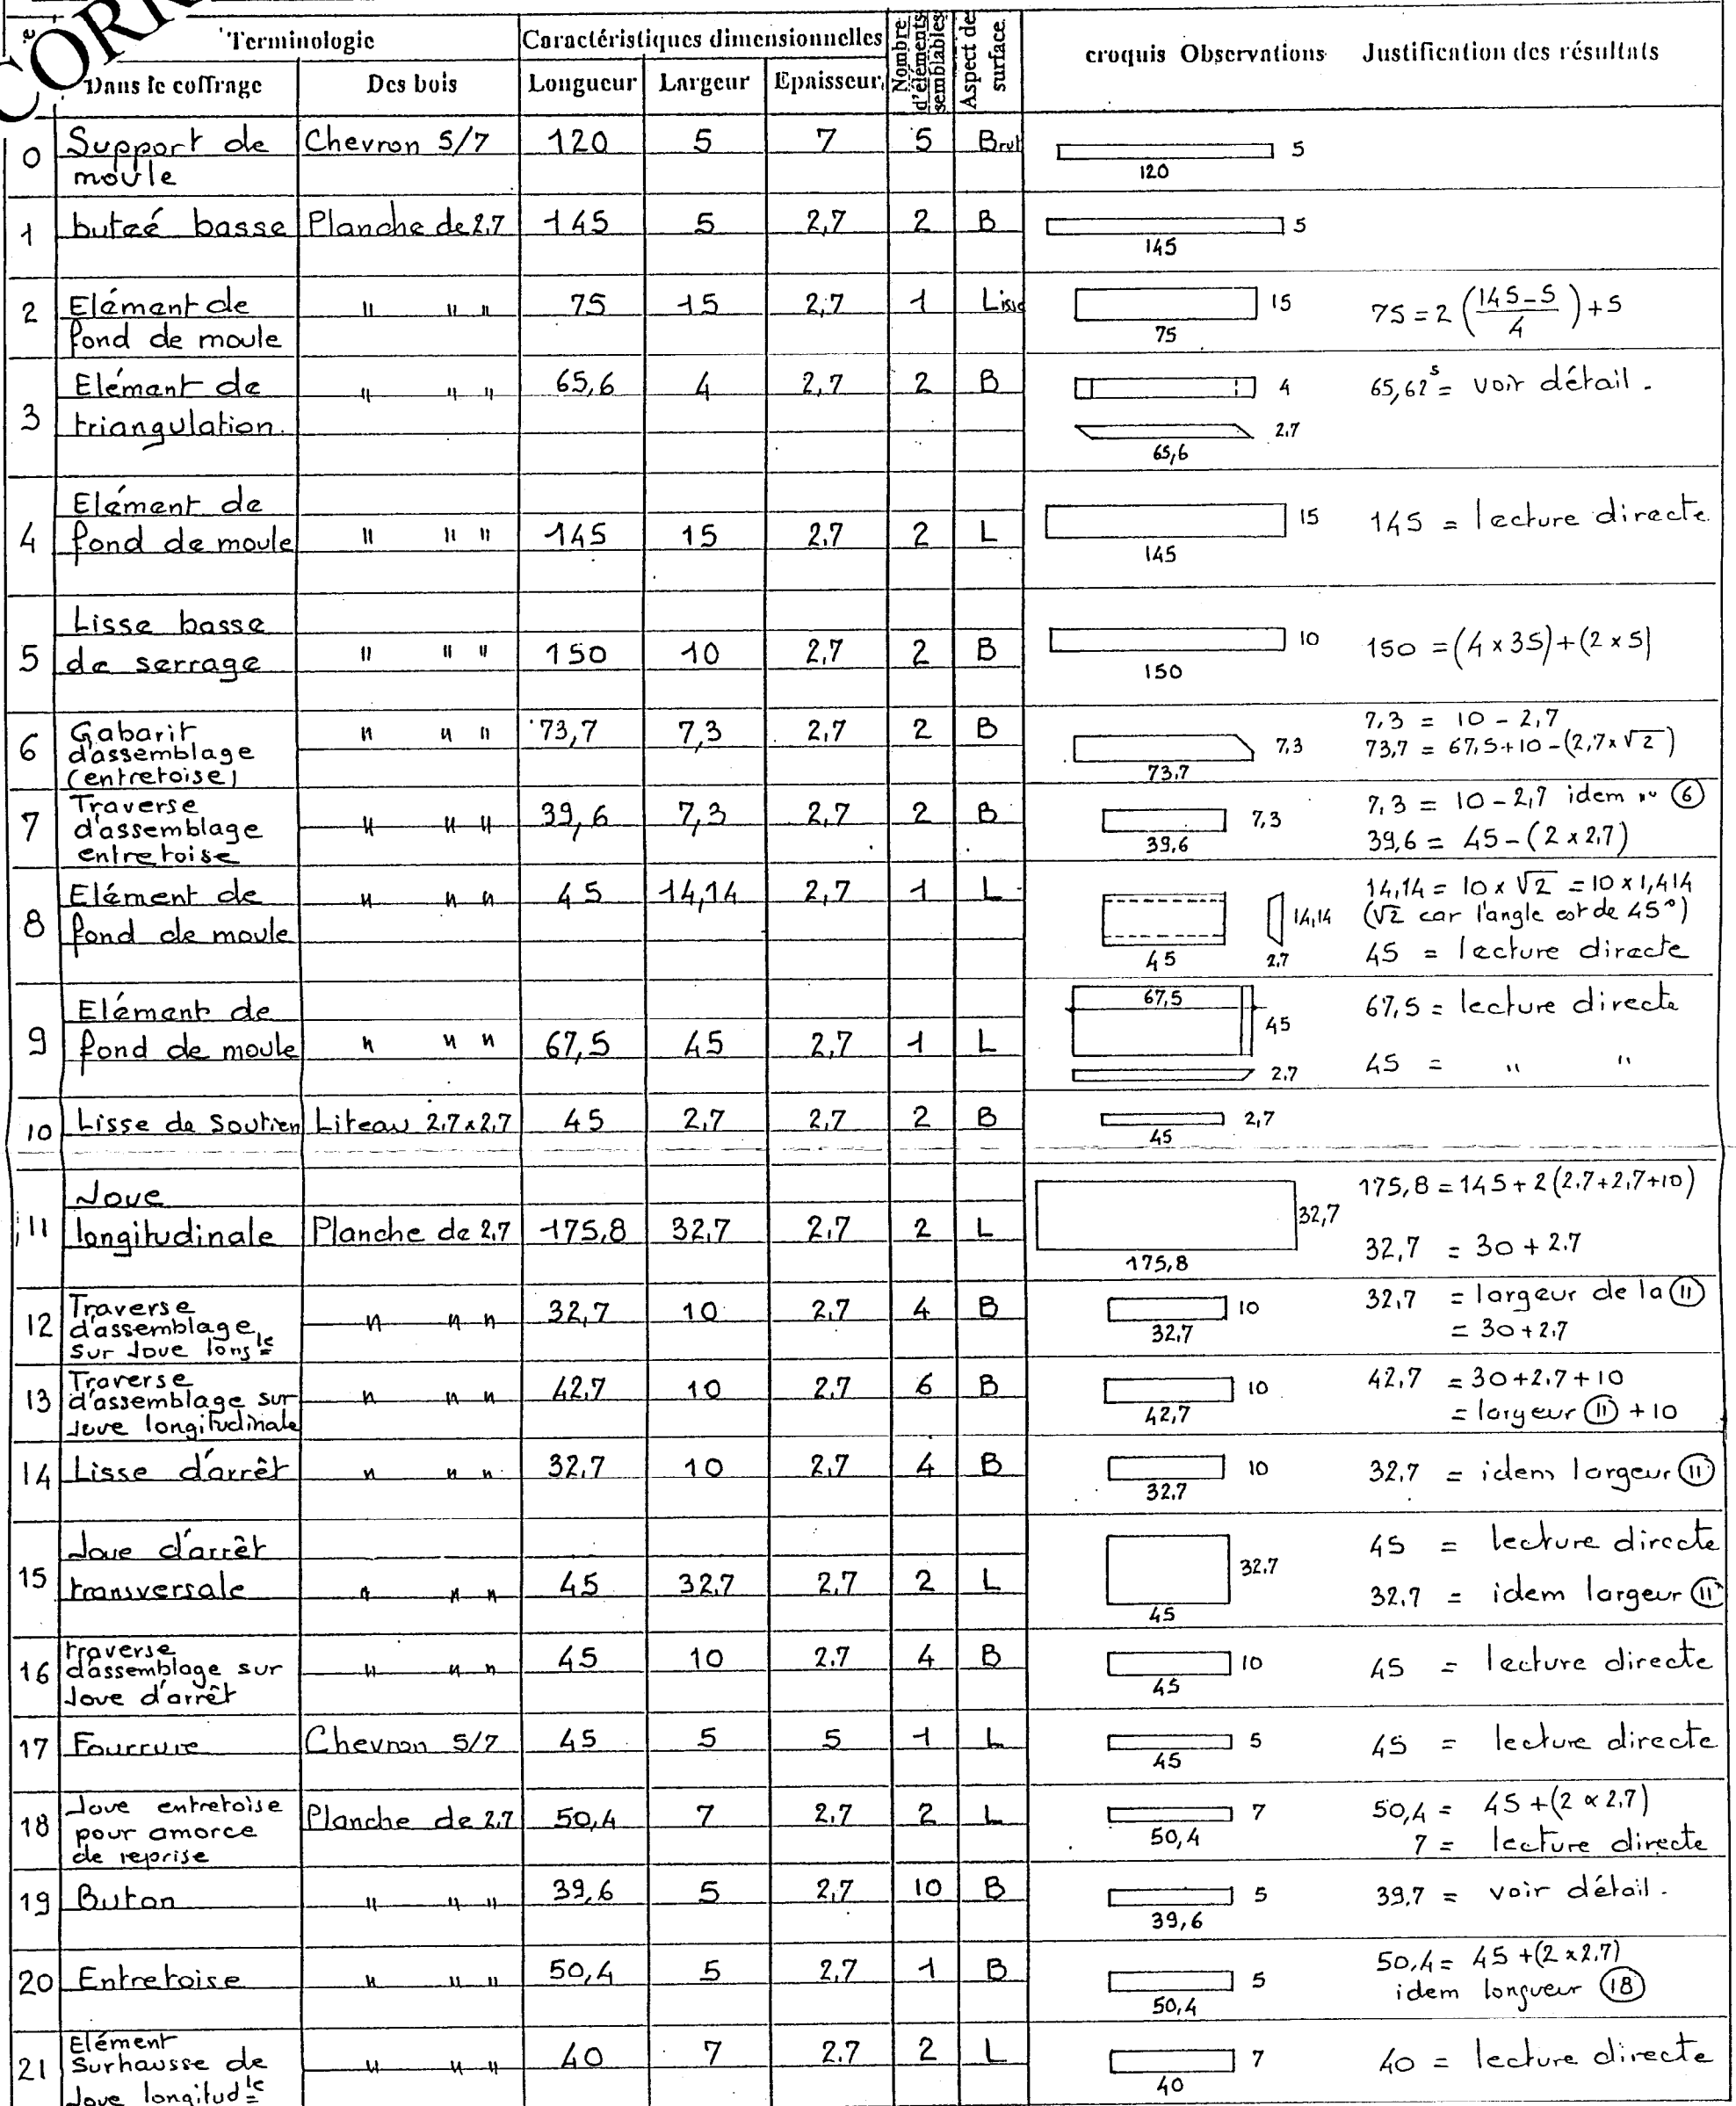 CORR
Terminologie
Caractéristiques dimensionnelles
Nombre d'éléments semblables
Aspect de surface.
croquis Observations Justification des résultats
Dans le coffrage
Des bois
Longueur
Largeur
Epaisseur
0 Support de moule Chevron 5/7 120 5 7 5 Brut
5
120
1 buteé basse Planche de 2,7 145 5 2,7 2 B
5
145
2 Elément de fond de moule " " " 75 15 2,7 1 Lisse
15
75
75 = 2 (145-5/4) + 5
3 Elément de triangulation. " " " 65,6 4 2,7 2 B
4
2.7
65,6
65,62⁵ = voir détail.
4 Elément de fond de moule " " " 145 15 2.7 2 L
15
145
145 = lecture directe
5 Lisse basse de serrage " " " 150 10 2,7 2 B
10
150
150 = (4 x 35) + (2 x 5)
6 Gabarit d'assemblage (entretoise) " " " 73,7 7,3 2,7 2 B
7,3
73.7
7,3 = 10 - 2,7
73,7 = 67,5+10-(2,7x√2)
7 Traverse d'assemblage entretoise " " " 39,6 7,3 2,7 2 B
7,3
39.6
7,3 = 10-2,7 idem n° ⑥
39,6 = 45-(2 x 2,7)
8 Elément de fond de moule " " " 45 14,14 2,7 1 L
14,14
45
2,7
14,14 = 10 x √2 = 10 x 1,414
(√2 car l'angle est de 45°)
45 = lecture directe
9 Elément de fond de moule " " " 67,5 45 2,7 1 L
67,5
45
2.7
67,5 = lecture directe
45 = " "
10 Lisse de Soutien Liteau 2.7x2.7 45 2,7 2,7 2 B
2,7
45
11 Joue longitudinale Planche de 2,7 175,8 32,7 2,7 2 L
32,7
175,8
175,8 = 145 + 2(2.7+2.7+10)
32,7 = 30 + 2.7
12 Traverse d'assemblage sur Joue longle " " " 32,7 10 2,7 4 B
10
32.7
32,7 = largeur de la ⑪
= 30+2.7
13 Traverse d'assemblage sur Joue longitudinale " " " 42.7 10 2.7 6 B
10
42,7
42,7 = 30+2.7+10
= largeur ⑪ +10
14 Lisse d'arrêt " " " 32.7 10 2,7 4 B
10
32.7
32,7 = idem largeur ⑪
15 Joue d'arrêt transversale " " " 45 32,7 2,7 2 L
32.7
45
45 = lecture directe
32.7 = idem largeur ⑪
16 traverse d'assemblage sur Joue d'arrêt " " " 45 10 2.7 4 B
10
45
45 = lecture directe
17 Fourrure Chevron 5/7 45 5 5 1 L
5
45
45 = lecture directe
18 Joue entretoise pour amorce de reprise Planche de 2.7 50,4 7 2.7 2 L
7
50,4
50,4 = 45 + (2 x 2.7)
7 = lecture directe
19 Buton " " " 39,6 5 2,7 10 B
5
39,6
39.7 = voir détail.
20 Entretoise " " " 50,4 5 2,7 1 B
5
50,4
50,4 = 45 +(2 x 2.7)
idem longueur ⑱
21 Elément Surhausse de Joue longitudle " " " 40 7 2.7 2 L
7
40
40 = lecture directe